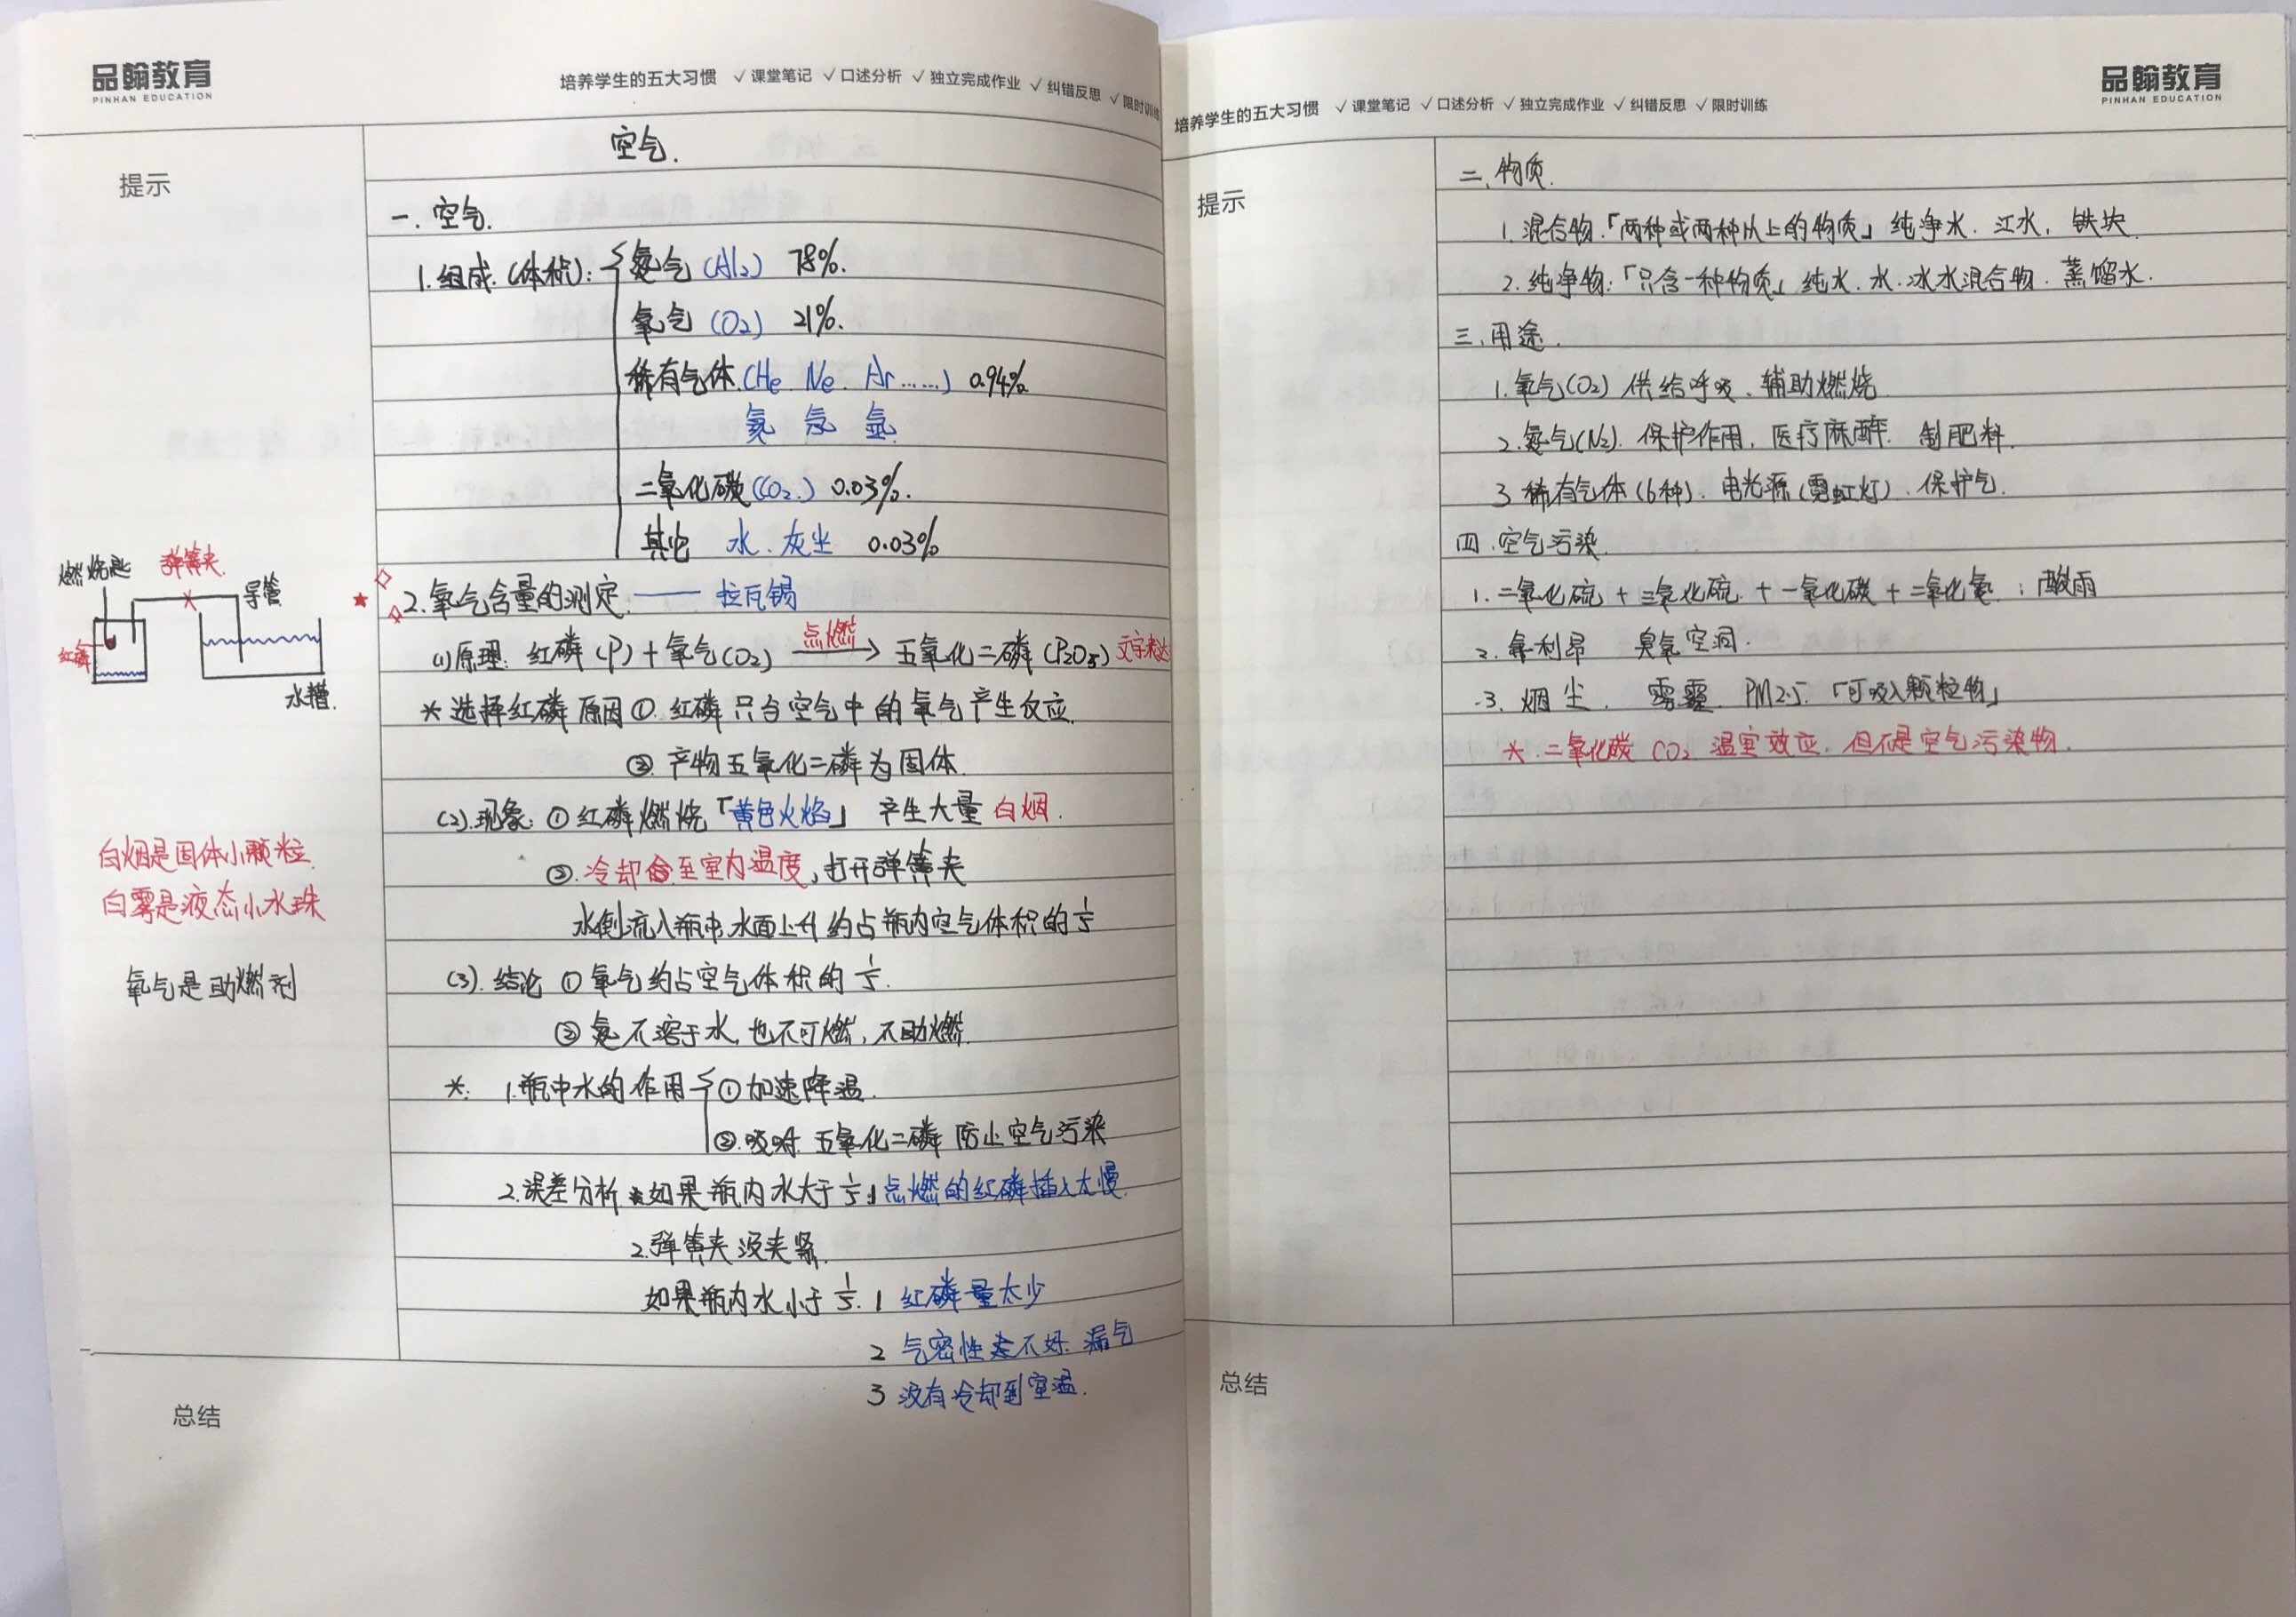 品翰教育
PINHAN EDUCATION
培养学生的五大习惯 ✓课堂笔记 ✓口述分析 ✓独立完成作业 ✓纠错反思 ✓限时训练
提示
空气.
一.空气.
1.组成.(体积):
氮气(N₂) 78%.
氧气(O₂) 21%.
稀有气体.(He Ne. Ar……) 0.94%
氦 氖 氩
二氧化碳(CO₂.) 0.03%.
其它 水.灰尘 0.03%
燃烧匙
弹簧夹
导管
红磷
水槽.
2.氧气含量的测定.—— 拉瓦锡
(1)原理: 红磷(P)+氧气(O₂) 点燃→ 五氧化二磷(P₂O₅) 文字表达
*选择红磷原因①.红磷只与空气中的氧气产生反应.
②.产物五氧化二磷为固体.
(2).现象:①红磷燃烧「黄色火焰」 产生大量白烟.
②.冷却至室内温度,打开弹簧夹
水倒流入瓶中,水面上升约占瓶内空气体积的1/5
(3).结论 ①氧气约占空气体积的1/5.
②氮不溶于水,也不可燃,不助燃.
*. 1.瓶中水的作用 ①加速降温.
②.吸收.五氧化二磷 防止空气污染
2.误差分析 如果瓶内水大于1/5 1 点燃的红磷插入太慢.
2.弹簧夹没夹紧.
如果瓶内水小于1/5. 1 红磷量太少
2 气密性不好 漏气
3 没有冷却到室温.
白烟是固体小颗粒.
白雾是液态小水珠
氧气是助燃剂
总结
培养学生的五大习惯 ✓课堂笔记 ✓口述分析 ✓独立完成作业 ✓纠错反思 ✓限时训练
品翰教育
PINHAN EDUCATION
提示
二.物质.
1.混合物.「两种或两种以上的物质」 纯净水.江水.铁块
2.纯净物:「只含一种物质」 纯水.水.冰水混合物.蒸馏水.
三.用途.
1.氧气(O₂) 供给呼吸、辅助燃烧.
2.氮气(N₂). 保护作用. 医疗麻醉. 制肥料.
3 稀有气体(6种). 电光源(霓虹灯).保护气.
四.空气污染.
1.二氧化硫+三氧化硫.+一氧化碳+二氧化氮.:酸雨
2.氟利昂 臭氧空洞.
3.烟尘. 雾霾. PM2.5.「可吸入颗粒物」
*.二氧化碳 CO₂ 温室效应.但不是空气污染物.
总结